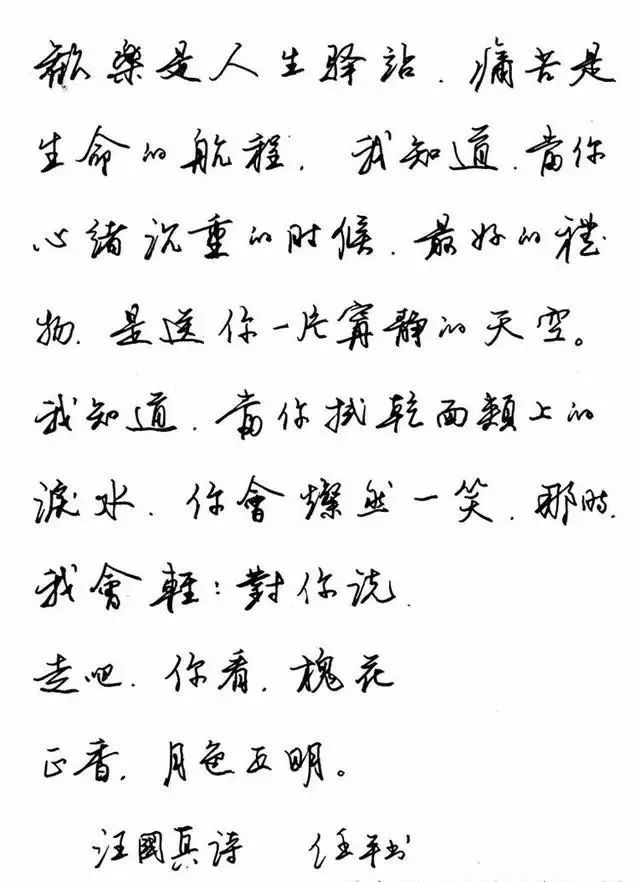 歡樂是人生驿站，痛苦是
生命的航程，我知道，當你
心緒沉重的时候，最好的禮
物，是送你一片寧静的天空。
我知道，當你拭乾面頰上的
淚水，你會燦然一笑，那時，
我會輕：對你说，
走吧，你看，槐花
正香，月色正明。
汪國真詩 任平书